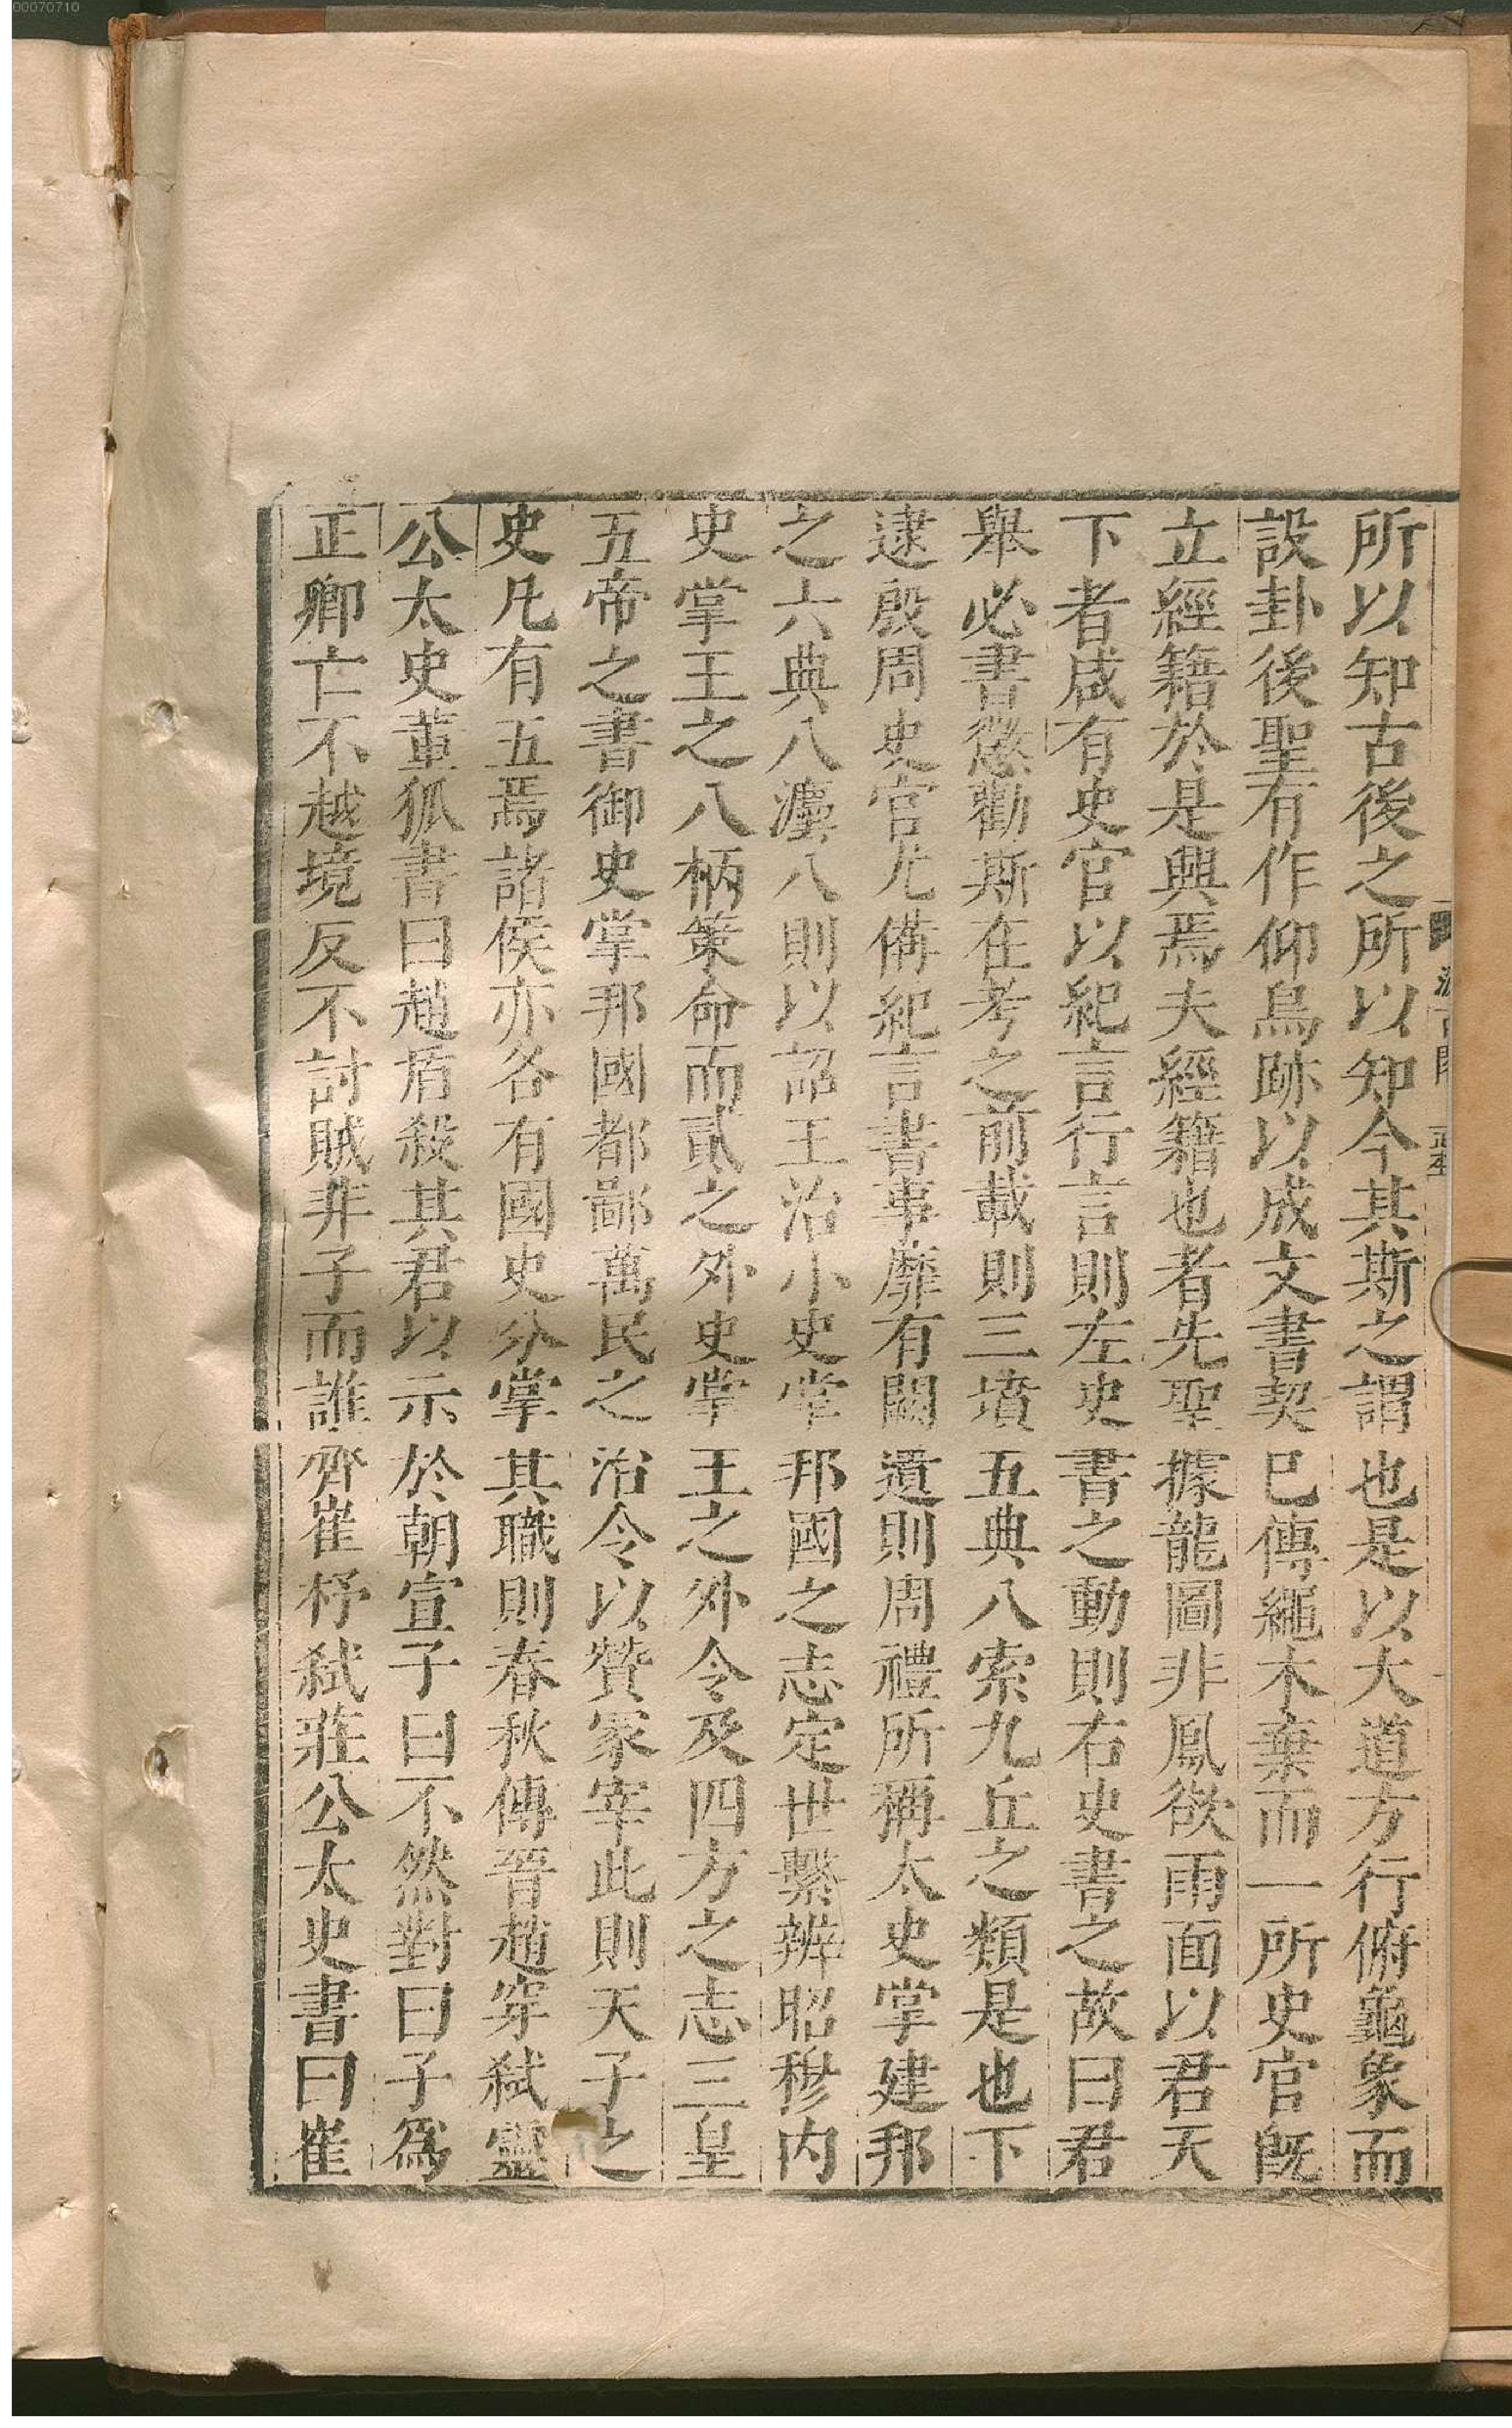 00070710
所以知古後之所以知今其斯之謂也是以大道方行俯龜象而
設卦後聖有作仰鳥跡以成文書契已傳繩木棄而一所史官旣
立經籍於是興焉夫經籍也者先聖據龍圖非鳳欲雨面以君天
下者咸有史官以紀言行言則左史書之動則右史書之故曰君
舉必書懲勸斯在考之前載則三墳五典八索九丘之類是也下
逮殷周史官尤備紀言書事靡有闕遺則周禮所稱太史掌建邦
之六典八灋八則以詔王治小史掌邦國之志定世繫辨昭穆内
史掌王之八柄策命而貳之外史掌王之外令及四方之志三皇
五帝之書御史掌邦國都鄙萬民之治令以贊冢宰此則天子之
史凡有五焉諸侯亦各有國史分掌其職則春秋傳晉趙穿弑靈
公太史董狐書曰趙盾殺其君以示於朝宣子曰不然對曰子爲
正卿亡不越境反不討賊非子而誰齊崔杼弑莊公太史書曰崔